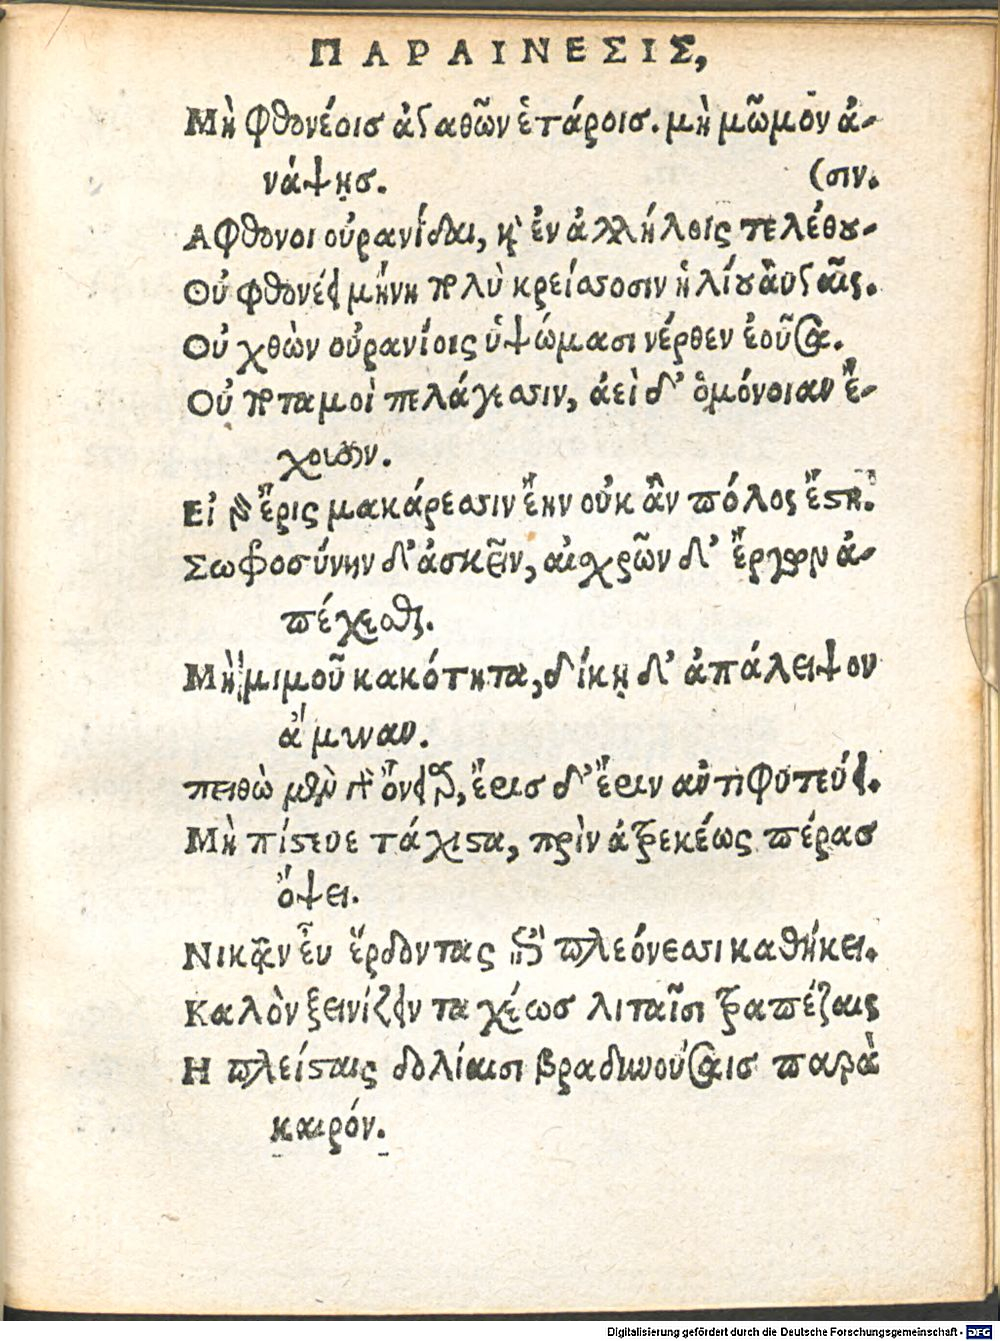 ΠΑΡΑΙΝΕΣΙΣ,
Μὴ φθονέοισ ἀγαθῶν ἑτάροισ. μὴ μῶμον ἀ-
νάψῃσ. (σιν.
Αφθονοι οὐρανίδαι, καὶ ἐν ἀλλήλοις τελέθου-
Οὐ φθονέει μήνη πολὺ κρείσσοσιν ἡλίου αὐγαῖς.
Οὐ χθὼν οὐρανίοις ὑψώμασι νέρθεν ἐοῦσα.
Οὐ ποταμοὶ πελάγεσσιν, ἀεὶ δ' ὁμόνοιαν ἔ-
χουσιν.
Εἰ γὰρ ἔρις μακάρεσσιν ἔην οὐκ ἂν πόλος ἔστη.
Σωφροσύνην δ' ἀσκεῖν, αἰσχρῶν δ' ἔργων ἀ-
πέχεσθαι.
Μὴ μιμοῦ κακότητα, δίκῃ δ' ἀπόλειψον
ἄμυναν.
πειθὼ μὲν γὰρ ὄνειαρ, ἔρισ δ' ἔριν ἀντιφυτεύει.
Μὴ πίστευε τάχιστα, πρὶν ἀτρεκέως πέρασ
ὄψει.
Νικᾶν εὖ ἔρδοντας ἐπὶ πλεόνεσσι καθήκει.
Καλὸν ξεινίζειν ταχέωσ λιταῖσι τραπέζαις
Η πλείσταις δολίαισι βραδυνούσαισ παρὰ
καιρόν.
Digitalisierung gefördert durch die Deutsche Forschungsgemeinschaft - DFG